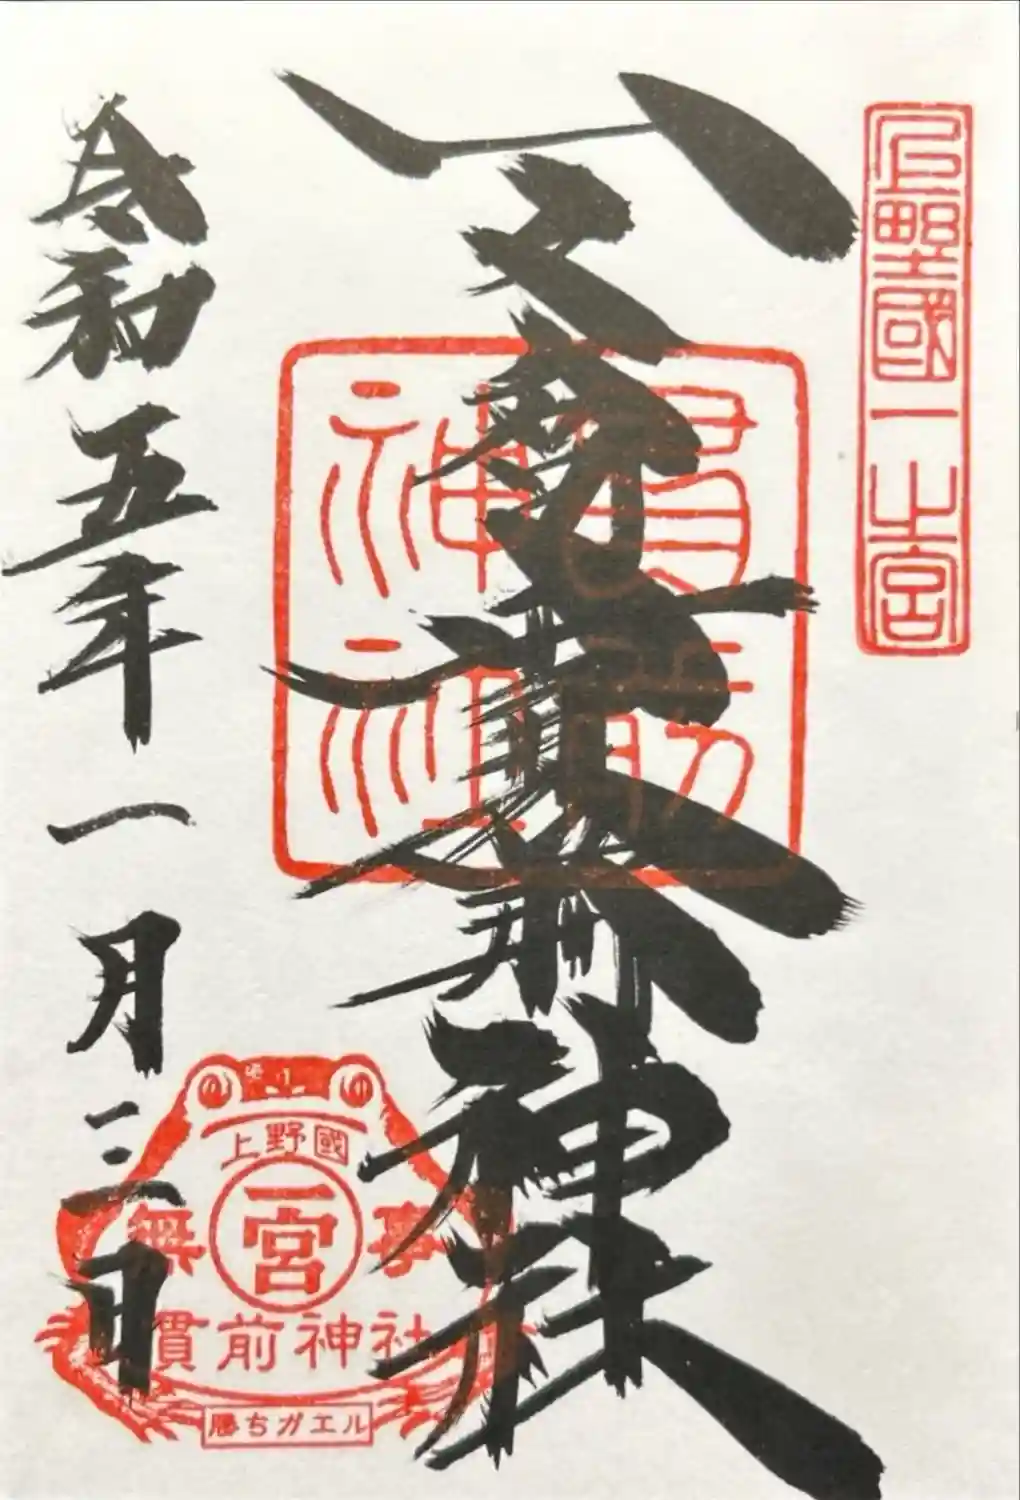 上野國一之宮
一之宮貫前神社
貫前神社
令和五年一月三日
上野國
一宮
無事
貫前神社
勝ちガエル